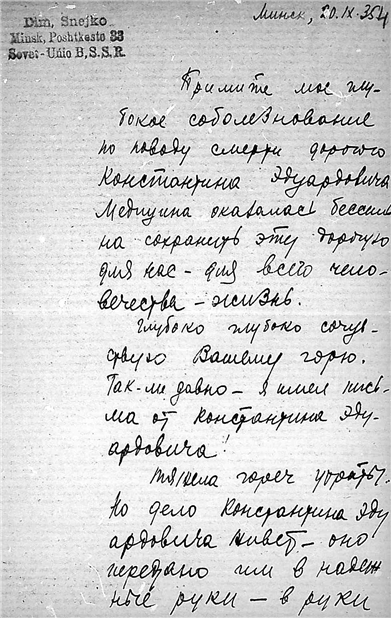 Dim. Snejko
Minsk, Poshtkesto 33
Sovet-Unio B.S.S.R.
Минск, 20.IX.35г
Примите мое глу-
бокое соболезнование
по поводу смерти дорогого
Константина Эдуардовича
Медицина оказалась бессиль
на сохранить эту дорогую
для нас – для всего чело-
вечества – жизнь.
Глубоко глубоко сочув
ствую Вашему горю.
Так-ли давно – я имел пись-
ма от Константина Эду-
ардовича!
Тяжела гореч утраты.
Но дело Константина Эду
ардовича живет – оно
передано им в надеж
ные руки – в руки